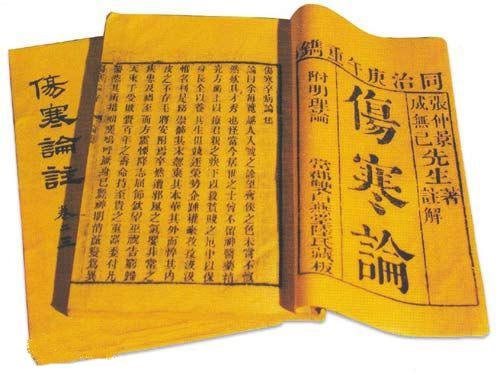 同治庚午年重鐫
張仲景
成無己
先生
著
註解
傷寒論
附明理論
常郡雙白燕堂陸氏藏板
傷寒卒病論集
論曰余每覽越人入虢之診望齊侯之色未嘗不慨
然歎其才秀也怪當今居世之士曾不留神醫藥精
究方術上以療君親之疾下以救貧賤之厄中以保
身長全以養其生但競逐榮勢企踵權豪孜孜汲汲
惟名利是務崇飾其末忽棄其本華其外而悴其內
皮之不存毛將安附焉卒然遭邪風之氣嬰非常之
疾患及禍至而方震慄降志屈節欽望巫祝告窮歸
天束手受敗賚百年之壽命持至貴之重器委付凡
醫恣其所措咄嗟嗚呼厥身已斃神明消滅變為異
傷寒論註
卷二三